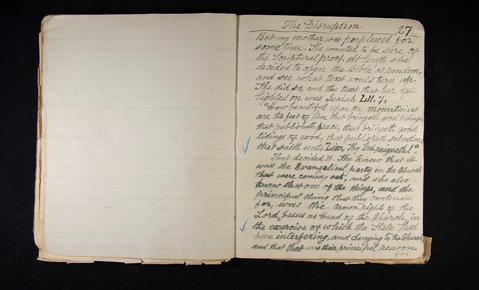 The Disruption. 27
But my mother was perplexed for
some time. She wanted to be sure of
the Scriptural proof. At length she
decided to open the Bible at random,
and see what text would turn up.
She did so, and the text that her eye
lighted on was Isaiah LII. 7,
"How beautiful upon the mountains
are the feet of him that bringeth good tidings,
that publisheth peace, that bringeth good
tidings of good, that publisheth salvation,
that saith unto Zion, Thy God reigneth!"
That decided it. She knew that it
was the Evangelical party in the Church
that were coming out, and she also
knew that one of the things, and the
principal thing that they contended
for, was the Crown rights of the
Lord Jesus as head of the Church, in
the exercise of which the State had
been interfering, and denying to the Church,
and that that was their principal reason
for